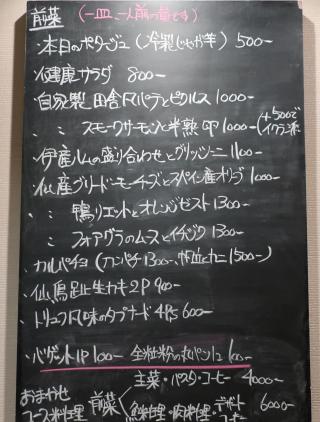 前菜 (一皿、一人前の量です)
・本日のポタージュ (冷製じゃが芋) 500-
・健康サラダ 800-
・自家製 田舎風パテとピクルス 1000-
・〃 スモークサーモンと半熟卵 1000- (+500で
・伊産ハムの盛り合わせとグリッシーニ 1100-
・仏産ブリ・ド・モーチーズとスペイン産オリーブ 1000-
・〃 鴨リエットとオレンジゼスト 1300-
・〃 フォアグラのムースとイチジク 1300-
・カルパチョ (カンパチ 1300-、帆立とカニ 1500-)
・仙鳳趾生カキ 2P 900-
・トリュフ風味のタプナード 4P's 600-
・バゲット 1P 100- 全粒粉の丸パン 1コ 100-
主菜・パスタ・コーヒー 4000-
おまかせ コース料理 前菜
魚料理・肉料理・デザート コーヒー 6000-